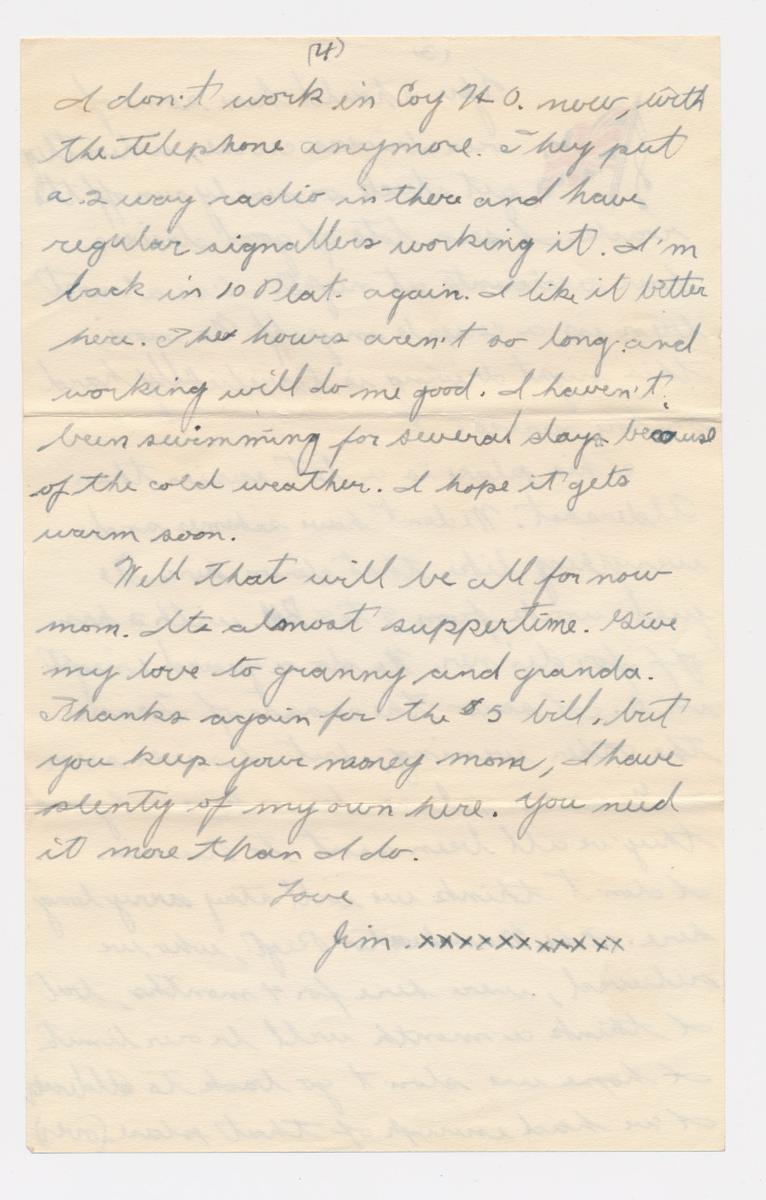 (4)
I don't work in Coy H Q. now, with
the telephone anymore. They put
a 2 way radio in there and have
regular signallers working it. I'm
back in 10 Plat. again. I like it better
here. The hours aren't so long and
working will do me good. I haven't
been swimming for several days because
of the cold weather. I hope it gets
warm soon.
Well that will be all for now
mom. Its almost suppertime. Give
my love to granny and granda.
Thanks again for the $5 bill, but
you keep your money mom, I have
plenty of my own here. You need
it more than I do.
Love
Jim. xxxxxxxxxxx